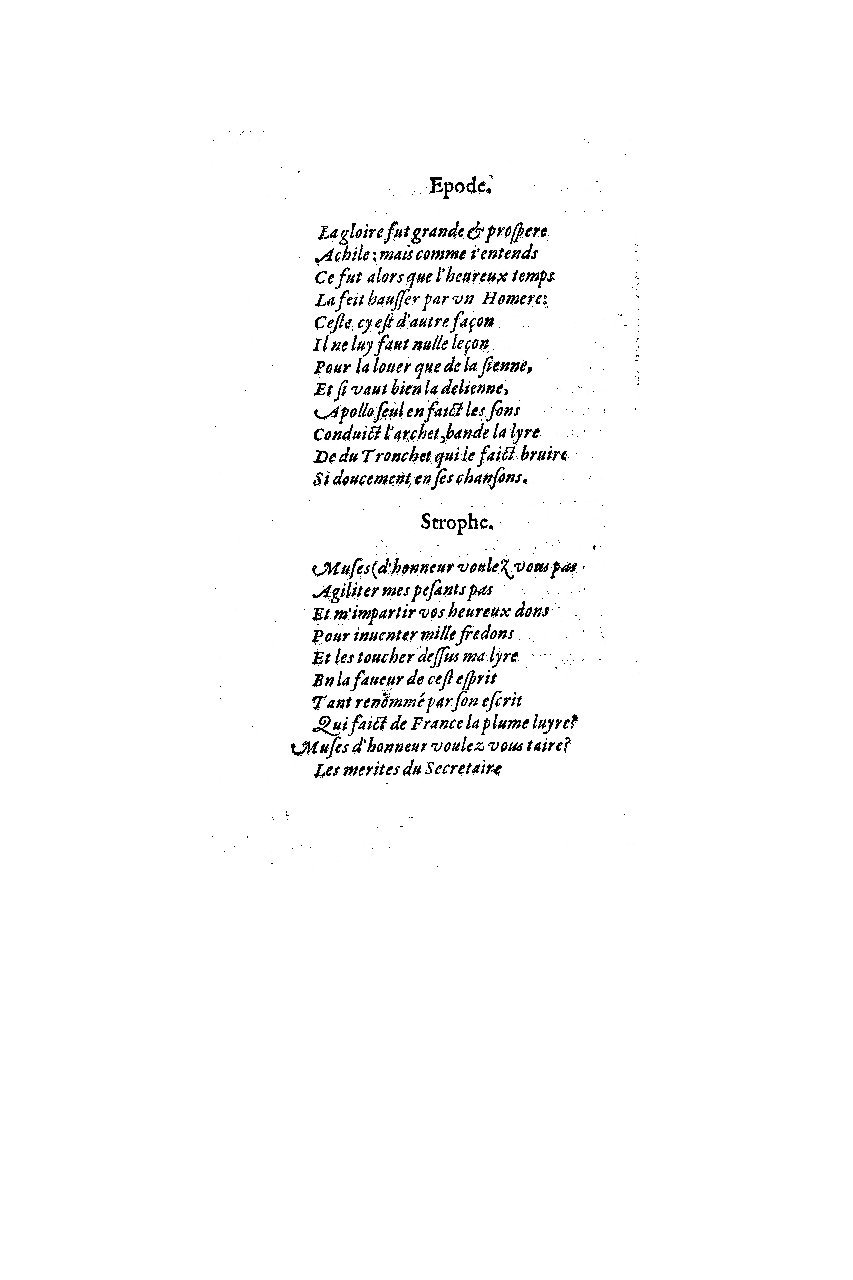 Epode.
La gloire fut grande & proſpere
Achile : mais comme i'entends
Ce fut alors que l'heureux temps
La feit hauſſer par vn Homere:
Ceſte cy eſt d'autre façon
Il ne luy faut nulle leçon
Pour la louer que de la ſienne,
Et ſi vaut bien la delienne,
Apollo ſeul en faict les ſons
Conduict l'archet, bande la lyre
De du Tronchet qui le faict bruire
Si doucement en ſes chanſons.
Strophe.
Muſes (d'honneur voulez vous pas
Agiliter mes peſants pas
Et m'impartir vos heureux dons
Pour inuenter mille fredons
Et les toucher deſſus ma lyre
En la faueur de ceſt eſprit
Tant renõmé par ſon eſcrit
Qui faict de France la plume luyre?
Muſes d'honneur voulez vous taire?
Les merites du Secretaire